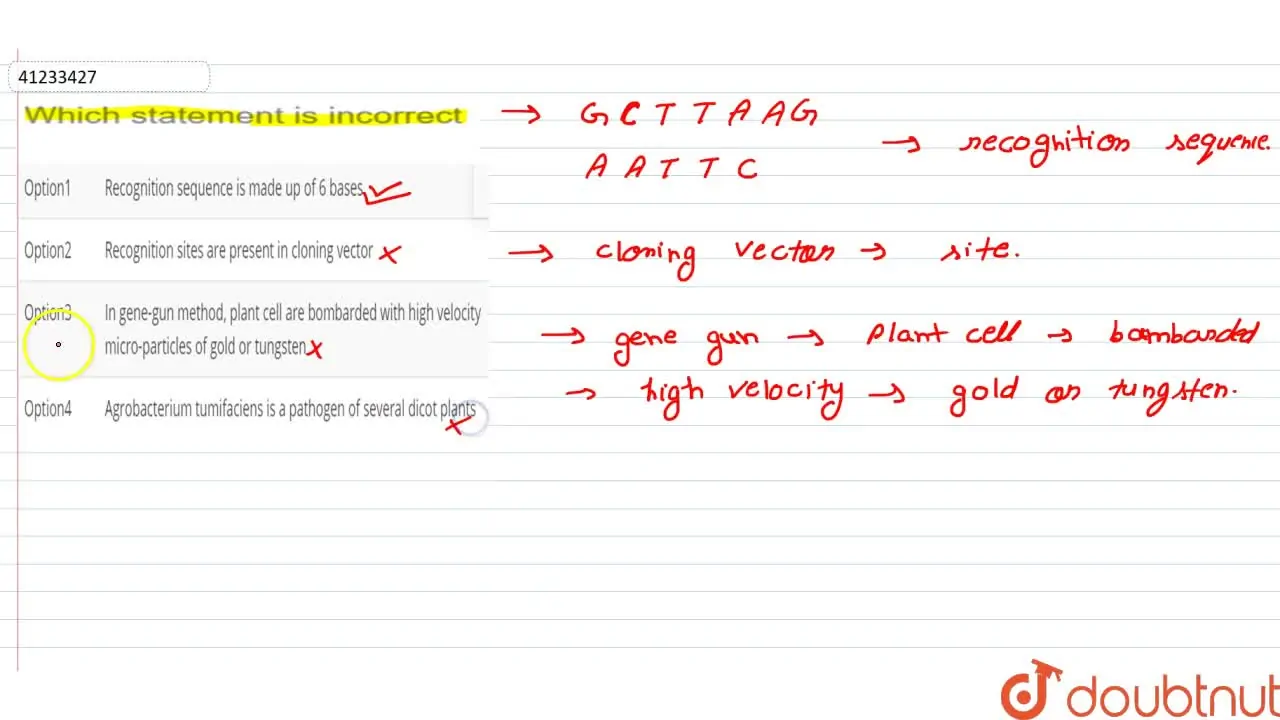 41233427
Which statement is incorrect → G C T T A A G
A A T T C → recognition sequence.
Option1 Recognition sequence is made up of 6 bases
Option2 Recognition sites are present in cloning vector × → cloning vector → site.
Option3 In gene-gun method, plant cell are bombarded with high velocity
micro-particles of gold or tungsten × → gene gun → plant cell → bombarded
→ high velocity → gold or tungsten.
Option4 Agrobacterium tumifaciens is a pathogen of several dicot plants ×
doubtnut